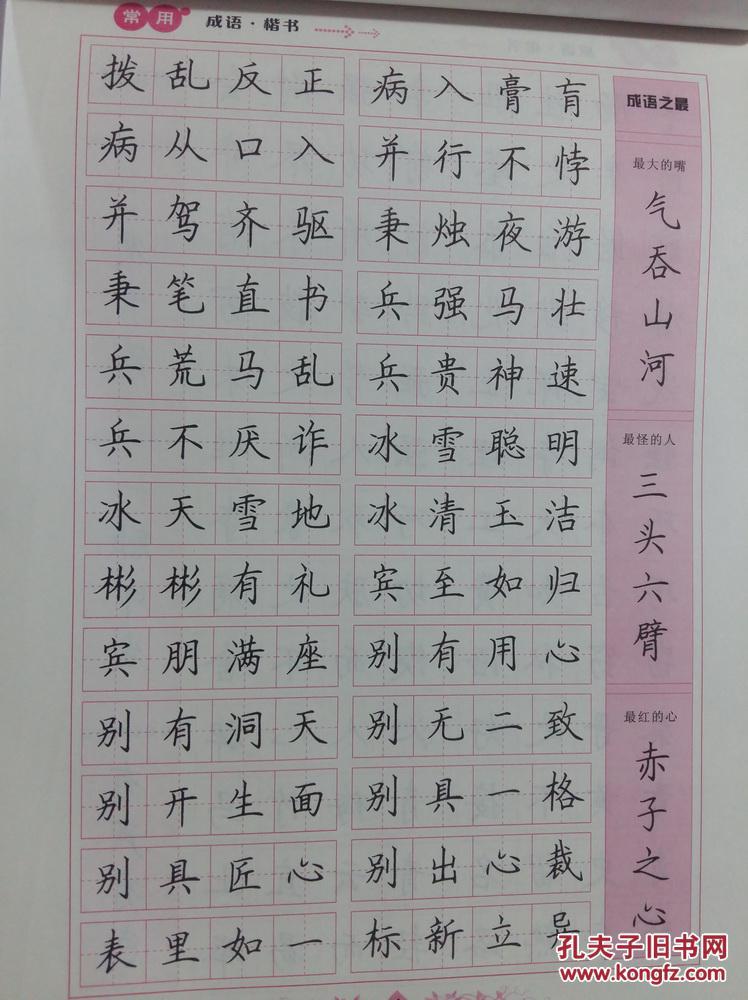 常用 成语·楷书
拨乱反正 病入膏肓
病从口入 并行不悖
并驾齐驱 秉烛夜游
秉笔直书 兵强马壮
兵荒马乱 兵贵神速
兵不厌诈 冰雪聪明
冰天雪地 冰清玉洁
彬彬有礼 宾至如归
宾朋满座 别有用心
别有洞天 别无二致
别开生面 别具一格
别具匠心 别出心裁
表里如一 标新立异
成语之最
最大的嘴
气吞山河
最怪的人
三头六臂
最红的心
赤子之心
孔夫子旧书网
www.kongfz.com